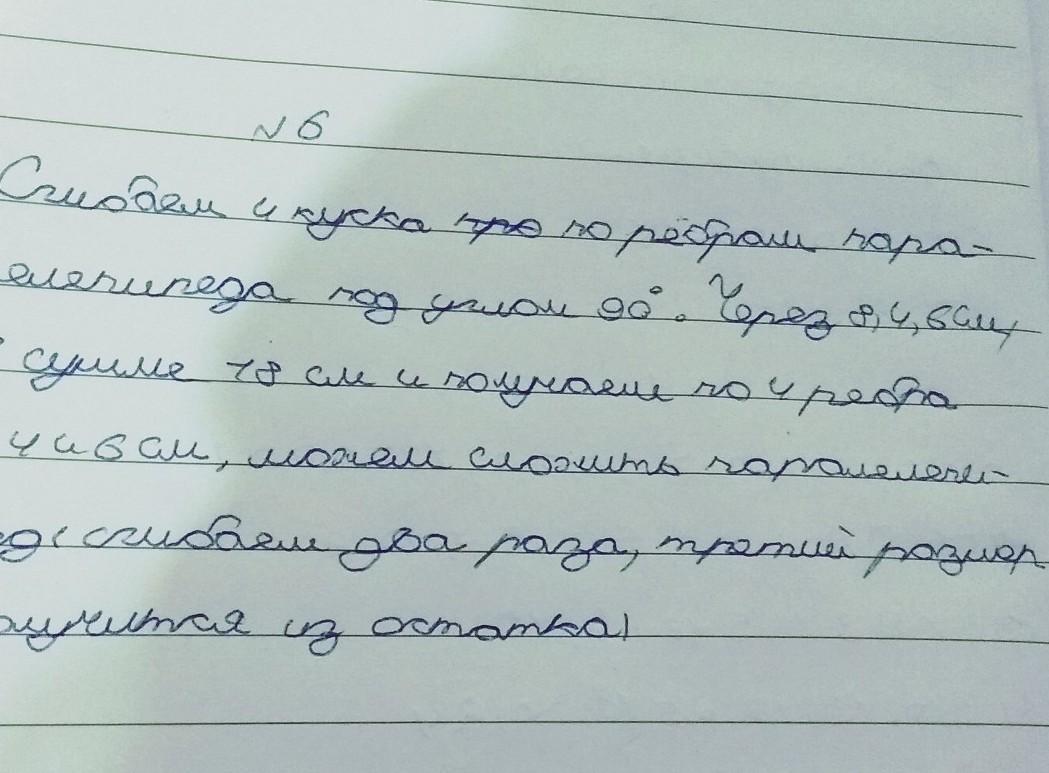 № 6
Сгибаем 4 куска по рёбрам пара-
елепипеда под углом 90°. Через 8, 4, 6 см,
сумме 18 см и получаем по 4 ребра
4 и 6 см, можем сложить паралелепи-
ед (сгибаем два раза, третий размер
олучится из остатка)